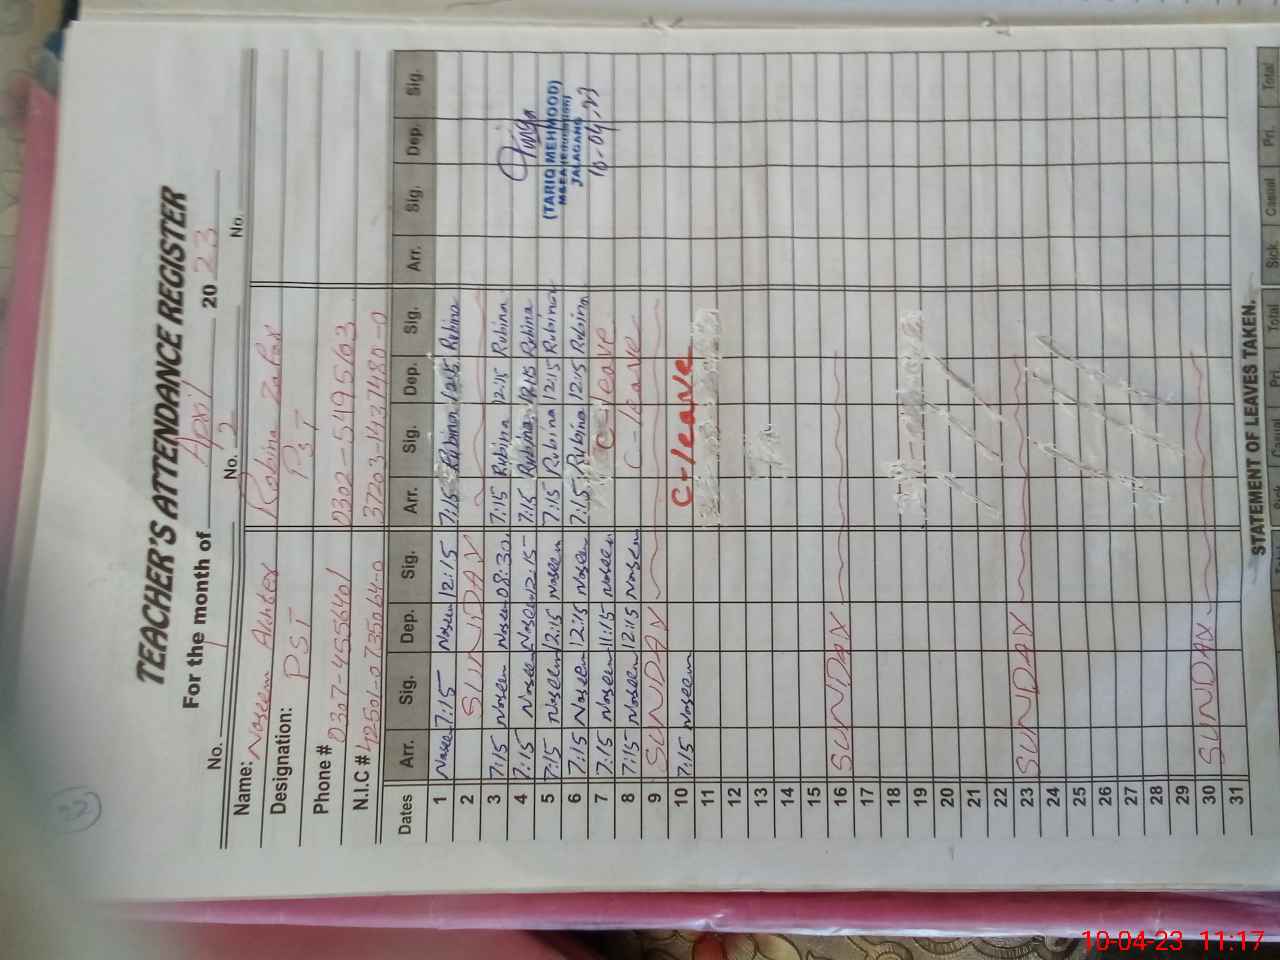 TEACHER'S ATTENDANCE REGISTER
For the month of April 2023
No. 1 No. 2 No.
Name: Naseem Akhter Robina Zafar
Designation: PST PST
Phone # 0307-4556401 0302-5495103
N.I.C # 42501-0735064-0 37203-1437480-0
Dates Arr. Sig. Dep. Sig. Arr. Sig. Dep. Sig. Arr. Sig. Dep. Sig.
1 Naseem 7:15 Naseem 12:15 7:15 Rubina 12:15 Rubina
2 SUNDAY
3 7:15 Naseem Naseem 08:30 7:15 Rubina 12:15 Rubina
4 7:15 Naseem Naseem 12:15 7:15 Rubina 12:15 Rubina
5 7:15 Naseem 12:15 Naseem 7:15 Rubina 12:15 Rubina
6 7:15 Naseem 12:15 Naseem 7:15 Rubina 12:15 Rubina
7 7:15 Naseem 11:15 Naseem C-leave
8 7:15 Naseem 12:15 Naseem C-leave
9 SUNDAY
10 7:15 Naseem C-leave
11
12
13
14
15
16 SUNDAY
17
18
19
20
21
22
23 SUNDAY
24
25
26
27
28
29
30 SUNDAY
31
(TARIQ MEHMOOD)
JALAGANG
10-04-23
STATEMENT OF LEAVES TAKEN.
Sick Casual Pri. Total
22
10-04-23 11:17